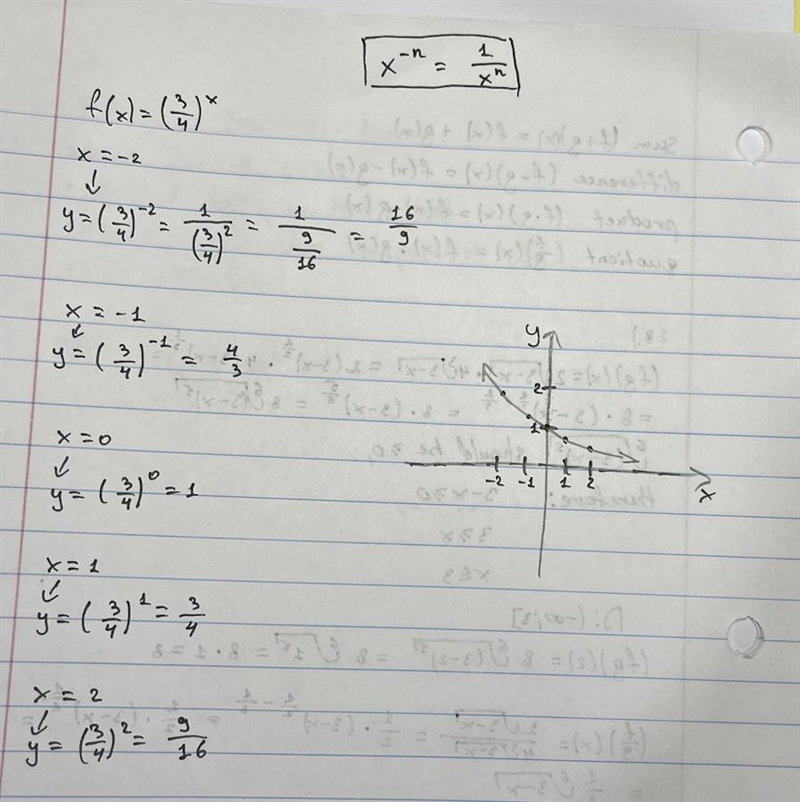 x^{-n} = 1/x^n
f(x) = (3/4)^x
x = -2
↓
y = (3/4)^{-2} = 1/(3/4)^2 = 1/(9/16) = 16/9
x = -1
↓
y = (3/4)^{-1} = 4/3
x = 0
↓
y = (3/4)^0 = 1
x = 1
↓
y = (3/4)^1 = 3/4
x = 2
↓
y = (3/4)^2 = 9/16
y
2
1
-2 -1 1 2
x